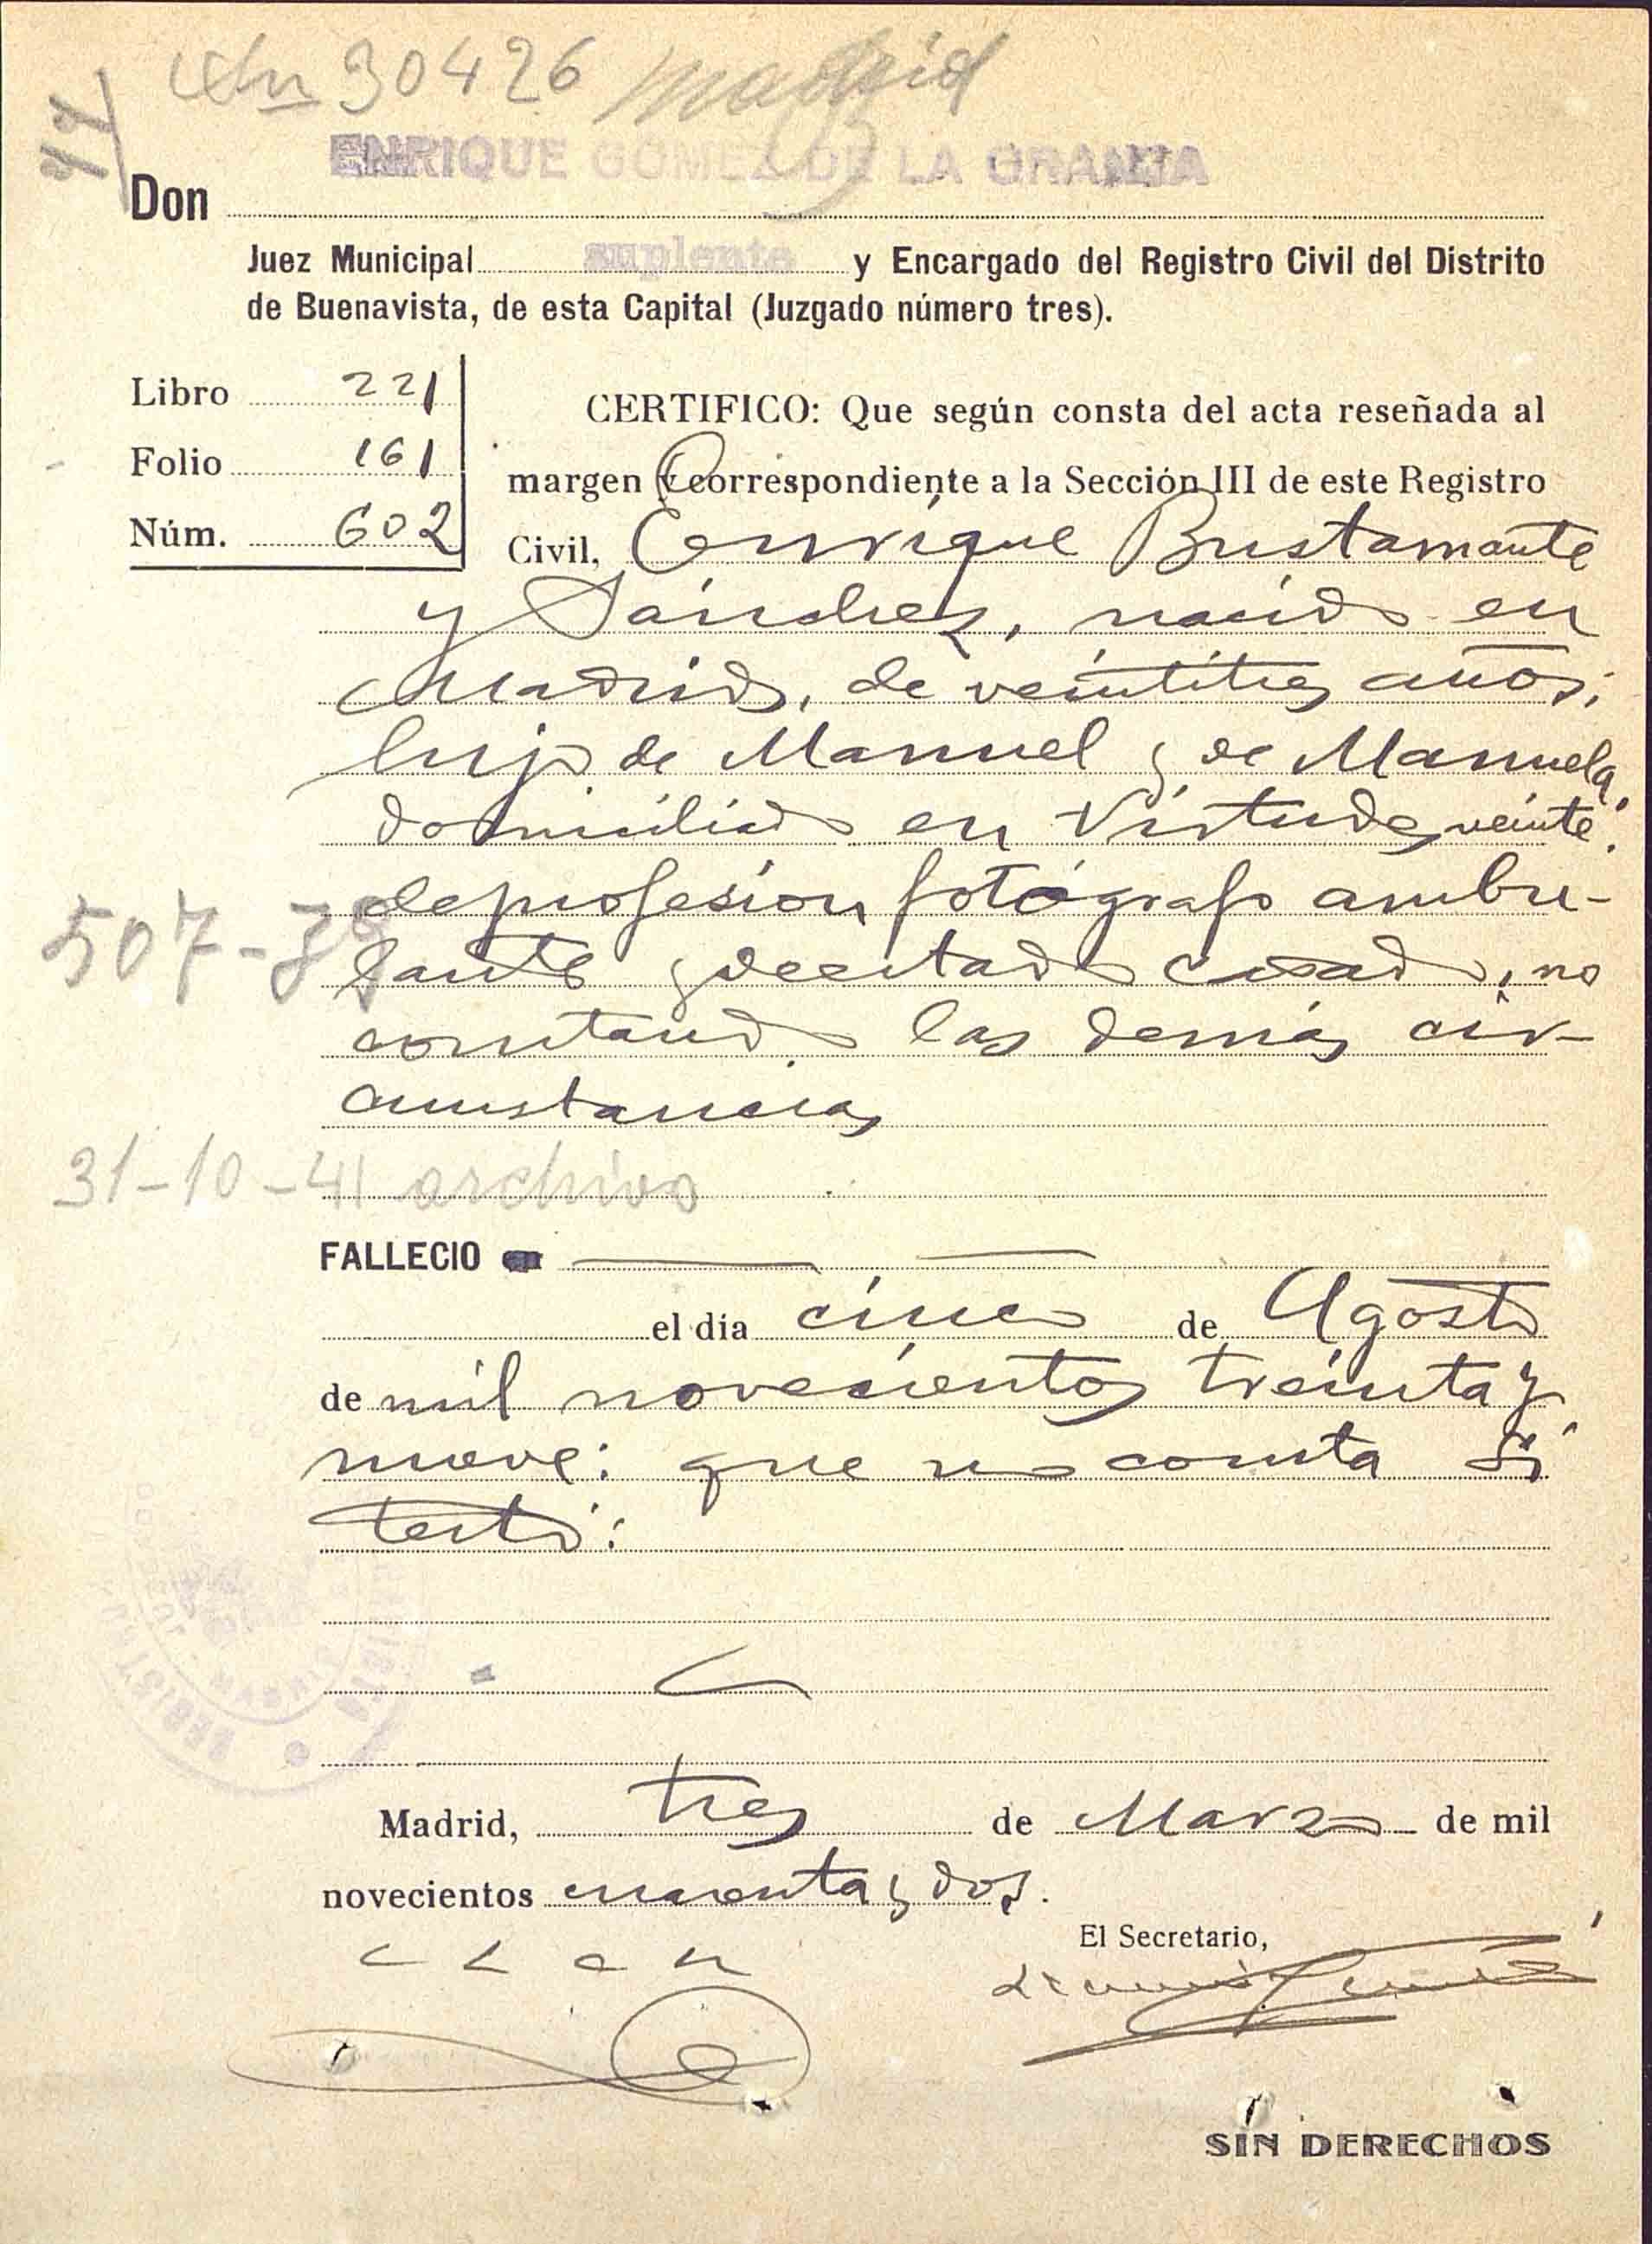 30426 Madrid
ENRIQUE GOMEZ DE LA GRANJA
Don
Juez Municipal suplente y Encargado del Registro Civil del Distrito
de Buenavista, de esta Capital (Juzgado número tres).
Libro 221
Folio 161
Núm. 602
CERTIFICO: Que según consta del acta reseñada al
margen correspondiente a la Sección III de este Registro
Civil, Enrique Bustamante
y Sánchez, nacido en
Madrid, de veintitres años;
hijo de Manuel y de Manuela,
domiciliado en Virtudes veinte
de profesión fotógrafo ambu-
lante y de estado casado, no
constando las demás cir-
cunstancias
507-39
31-10-41 archivo
FALLECIO
el dia cinco de Agosto
de mil novecientos treinta y
nueve: que no consta si
testó:
Madrid, tres de Marzo de mil
novecientos cuarenta y dos.
El Secretario,
SIN DERECHOS